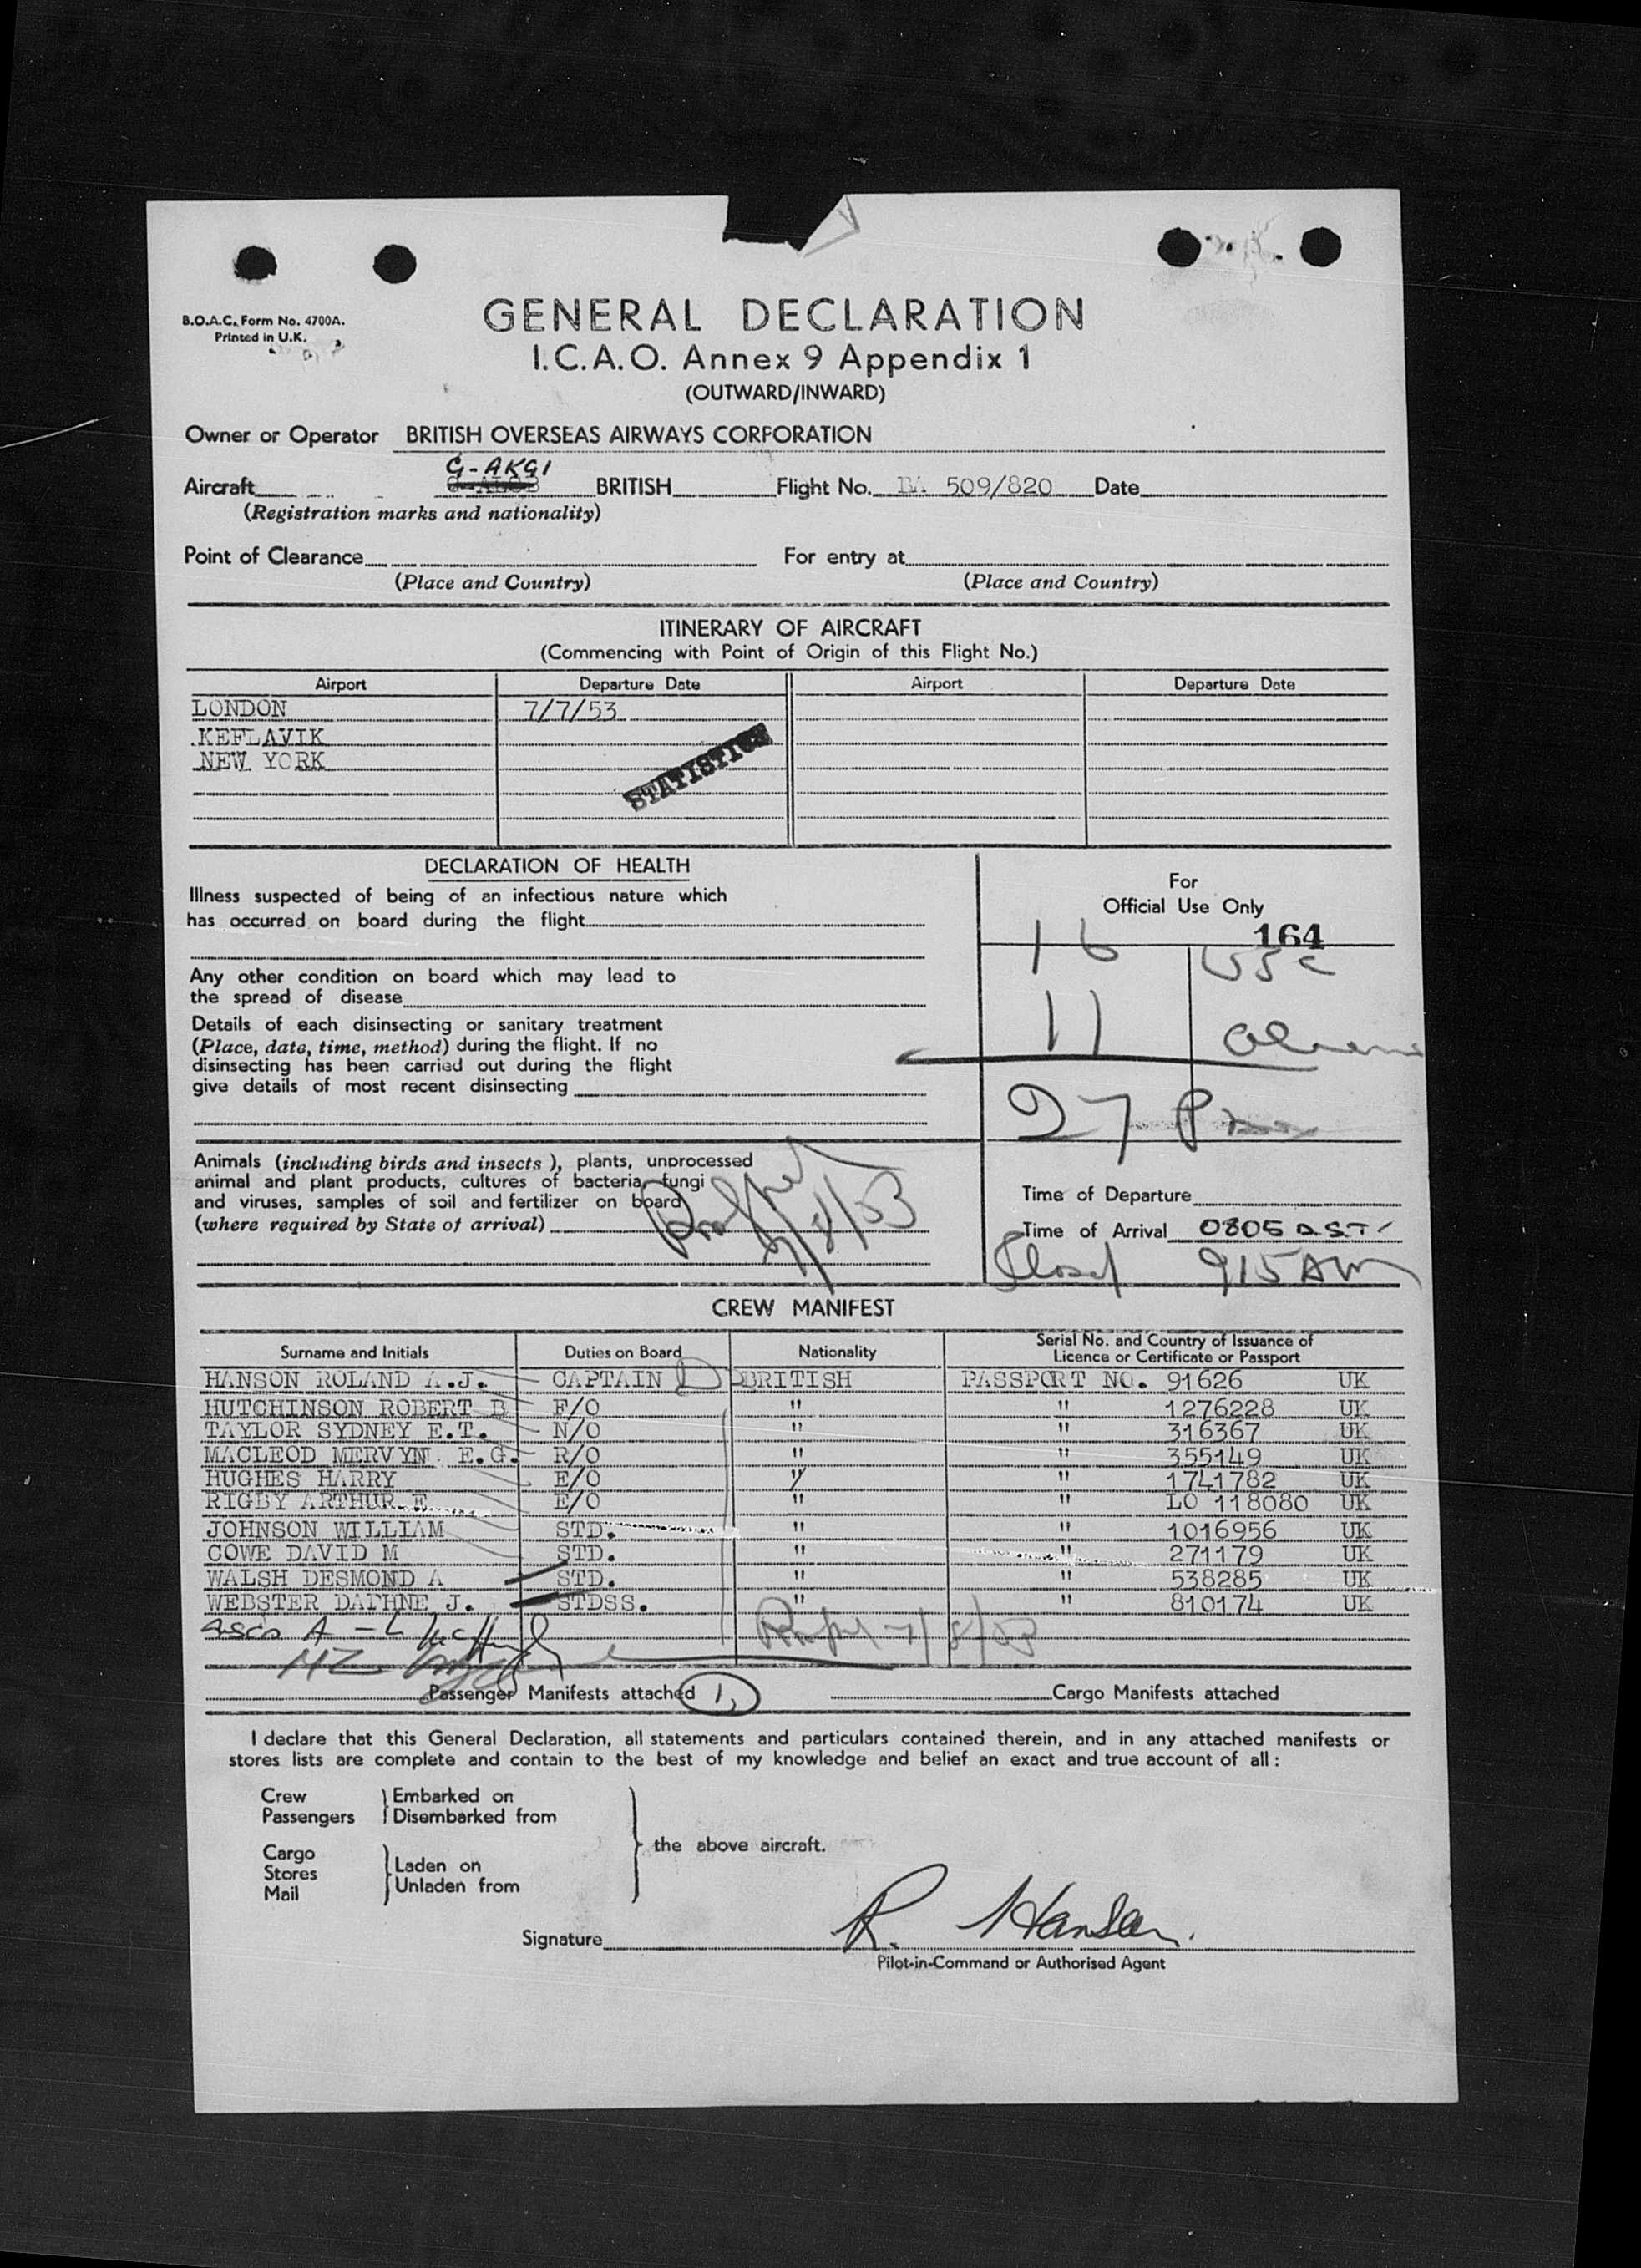 B.O.A.C. Form No. 4700A.
Printed in U.K.
GENERAL DECLARATION
I.C.A.O. Annex 9 Appendix 1
(OUTWARD/INWARD)
Owner or Operator BRITISH OVERSEAS AIRWAYS CORPORATION
G-AKGI
Aircraft BRITISH Flight No. BA 509/820 Date
(Registration marks and nationality)
Point of Clearance For entry at
(Place and Country) (Place and Country)
ITINERARY OF AIRCRAFT
(Commencing with Point of Origin of this Flight No.)
Airport Departure Date Airport Departure Date
LONDON 7/7/53
KEFLAVIK
NEW YORK
STATISTICS
DECLARATION OF HEALTH
Illness suspected of being of an infectious nature which
has occurred on board during the flight
Any other condition on board which may lead to
the spread of disease
Details of each disinsecting or sanitary treatment
(Place, date, time, method) during the flight. If no
disinsecting has been carried out during the flight
give details of most recent disinsecting
For
Official Use Only
164
16 USC
11 Aliens
27 Pax
Animals (including birds and insects), plants, unprocessed
animal and plant products, cultures of bacteria, fungi
and viruses, samples of soil and fertilizer on board
(where required by State of arrival)
7/8/53
Time of Departure
Time of Arrival 0805 D.S.T.
Closed 915 AM
CREW MANIFEST
Surname and Initials Duties on Board Nationality Serial No. and Country of Issuance of
Licence or Certificate or Passport
HANSON ROLAND A.J. CAPTAIN D BRITISH PASSPORT NO. 91626 UK
HUTCHINSON ROBERT B F/O " " 1276228 UK
TAYLOR SYDNEY E.T. N/O " " 316367 UK
MACLEOD MERVYN E.G. R/O " " 355149 UK
HUGHES HARRY E/O " " 1741782 UK
RIGBY ARTHUR E E/O " " LO 118080 UK
JOHNSON WILLIAM STD. " " 1016956 UK
COWE DAVID M STD. " " 271179 UK
WALSH DESMOND A STD. " " 538285 UK
WEBSTER DAPHNE J. STDSS. " " 810174 UK
7/8/53
Passenger Manifests attached 1, Cargo Manifests attached
I declare that this General Declaration, all statements and particulars contained therein, and in any attached manifests or
stores lists are complete and contain to the best of my knowledge and belief an exact and true account of all :
Crew Embarked on
Passengers Disembarked from
the above aircraft.
Cargo
Stores Laden on
Mail Unladen from
Signature R. Hanson.
Pilot-in-Command or Authorised Agent